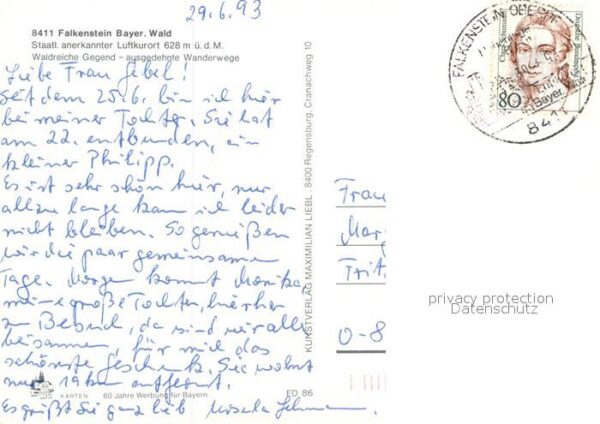 29.6.93
8411 Falkenstein Bayer. Wald
Staatl. anerkannter Luftkurort 628 m ü. d. M.
Waldreiche Gegend – ausgedehnte Wanderwege
Liebe Frau Gebel!
Seit dem 25.6. bin ich hier
bei meiner Tochter. Sie hat
am 22. entbunden, ein
kleiner Philipp.
Es ist sehr schön hier, nur
allzu lange kann ich leider
nicht bleiben. So genießen
wir die paar gemeinsamen
Tage. Morgen kommt Monika,
meine große Tochter, hierher
zu Besuch, da sind wir alle
beisammen, für mich das
schönste Geschenk. Sie wohnt
nur 19 km entfernt.
KARTEN 60 Jahre Werbung für Bayern ED 86
Es grüßt Sie ganz lieb
KUNSTVERLAG MAXIMILIAN LIEBL · 8400 Regensburg, Cranachweg 10
FALKENSTEIN
Bayer
8411
80
Frau
Marg
Frit
O-8
privacy protection
Datenschutz